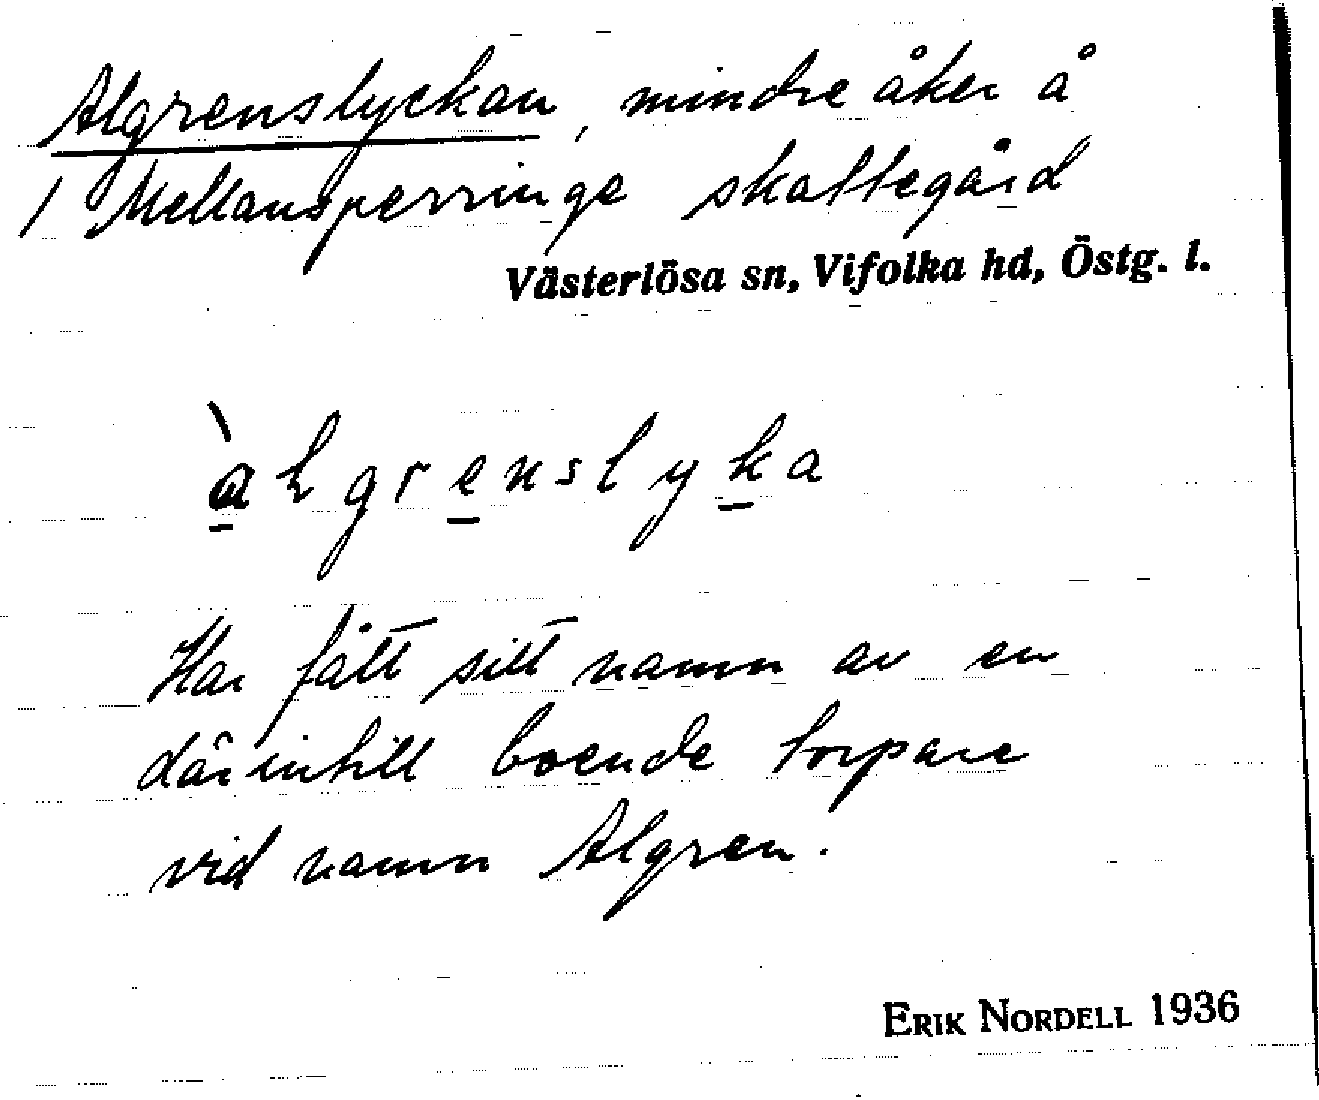 Algrenslyckan, mindre åker å
/ Mellansperringe skattegård
Västerlösa sn, Vifolka hd, Östg. l.
àlgrenslyka
Har fått sitt namn av en
därintill boende torpare
vid namn Algren.
ERIK NORDELL 1936